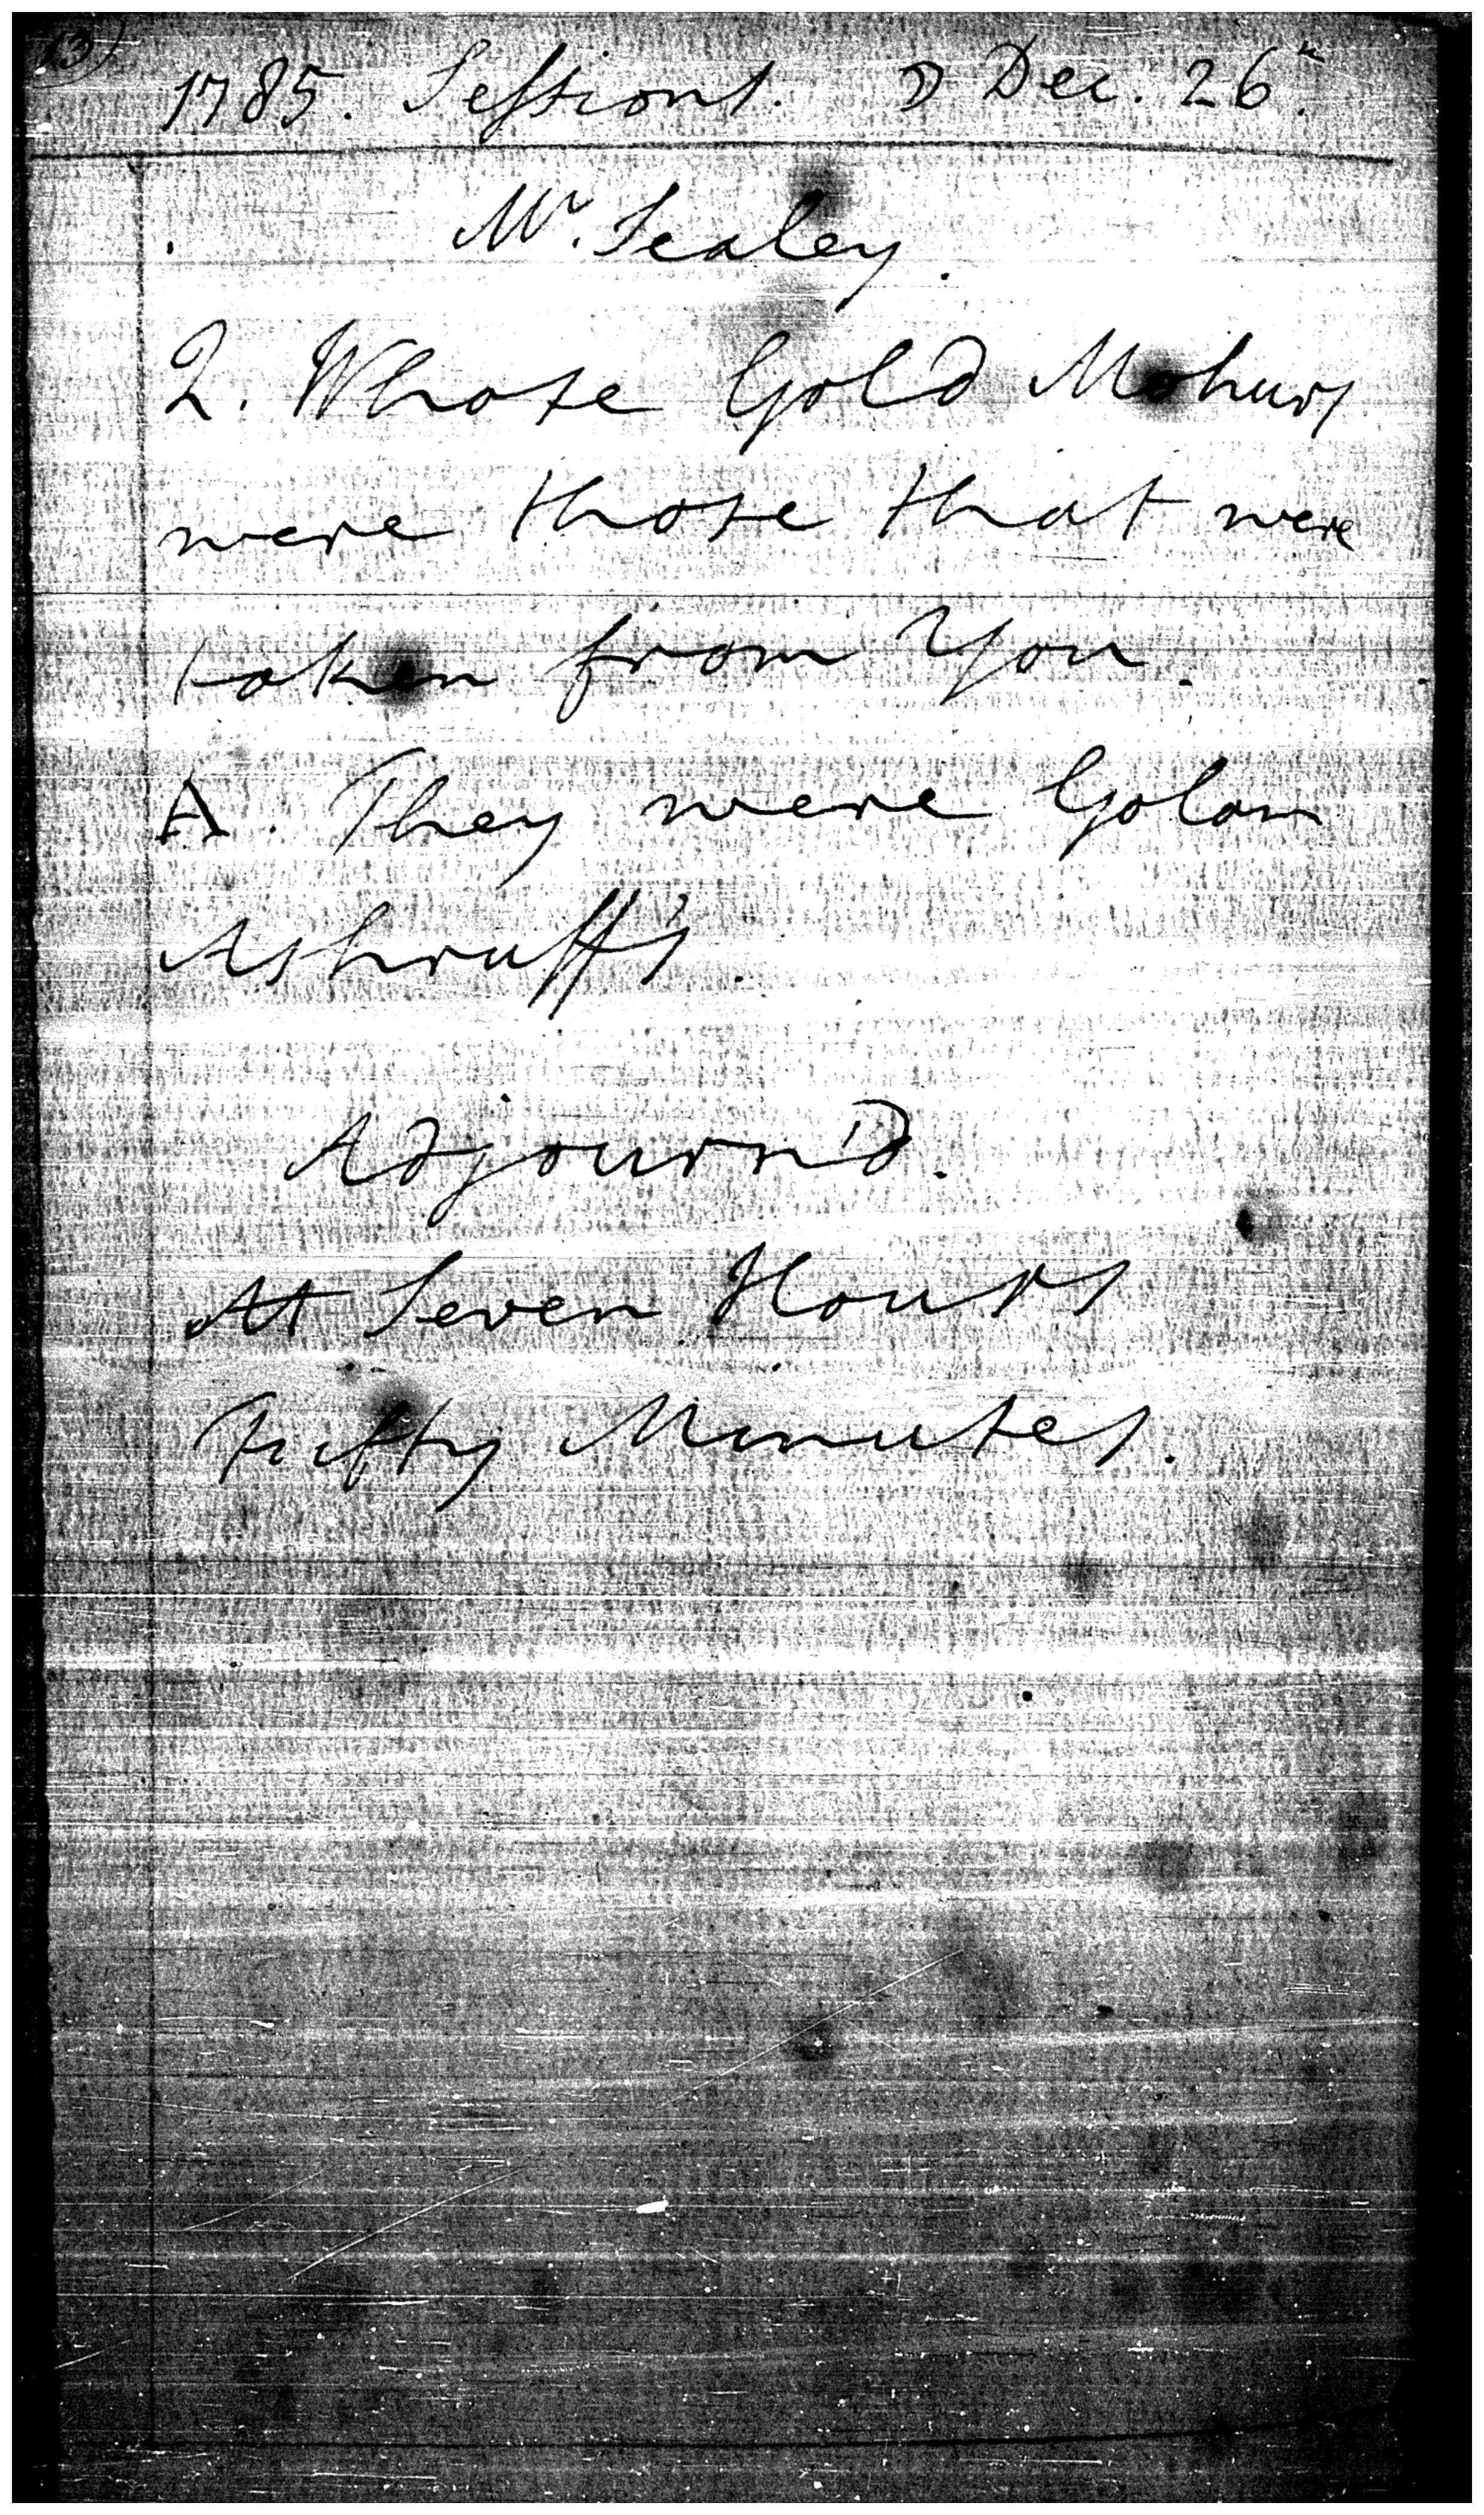 13)
1785. Sessions. ☽ Dec. 26th.
Mr. Sealey.
Q. Whose Gold Mohurs
were those that were
taken from You.
A. They were Golam
Ashruff's.
Adjourn'd.
At Seven Hours
Fifty Minutes.